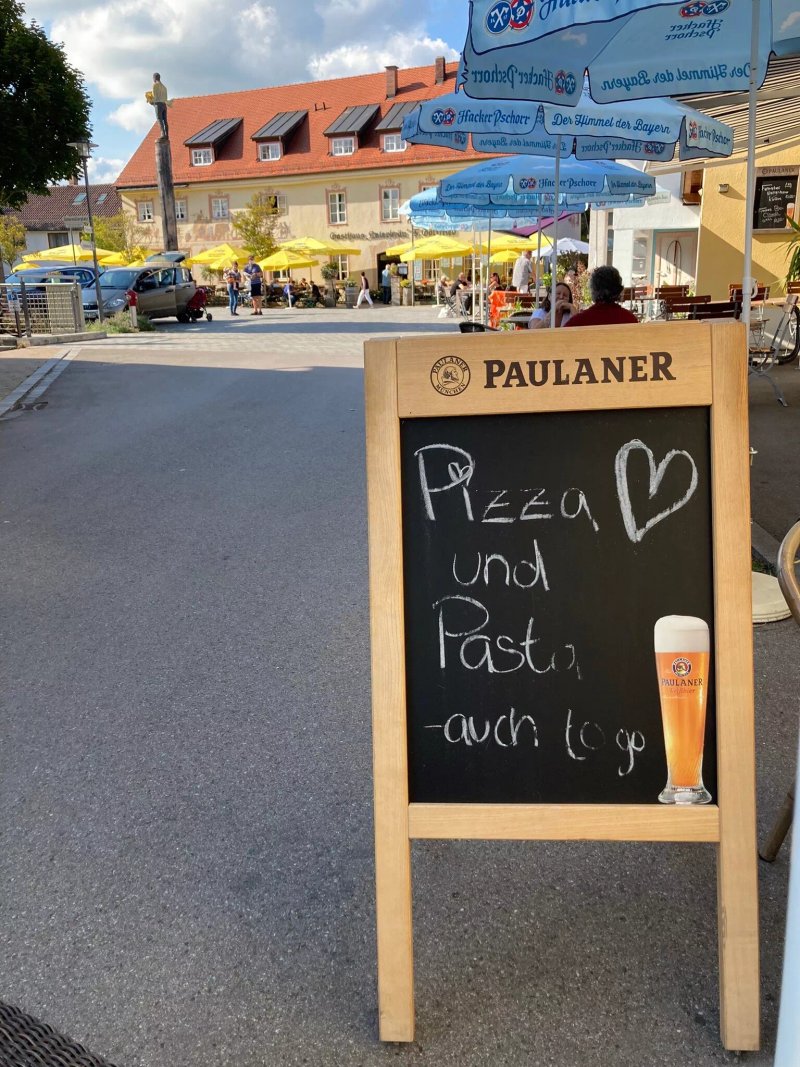 Hacker-Pschorr
Der Himmel der Bayern
Hacker Pschorr
Hacker-Pschorr
Der Himmel der Bayern
Hacker Pschorr
Hacker-Pschorr
PAULANER
Gasthaus
PAULANER MÜNCHEN
PAULANER
Pizza
und
Pasta
-auch to go
PAULANER